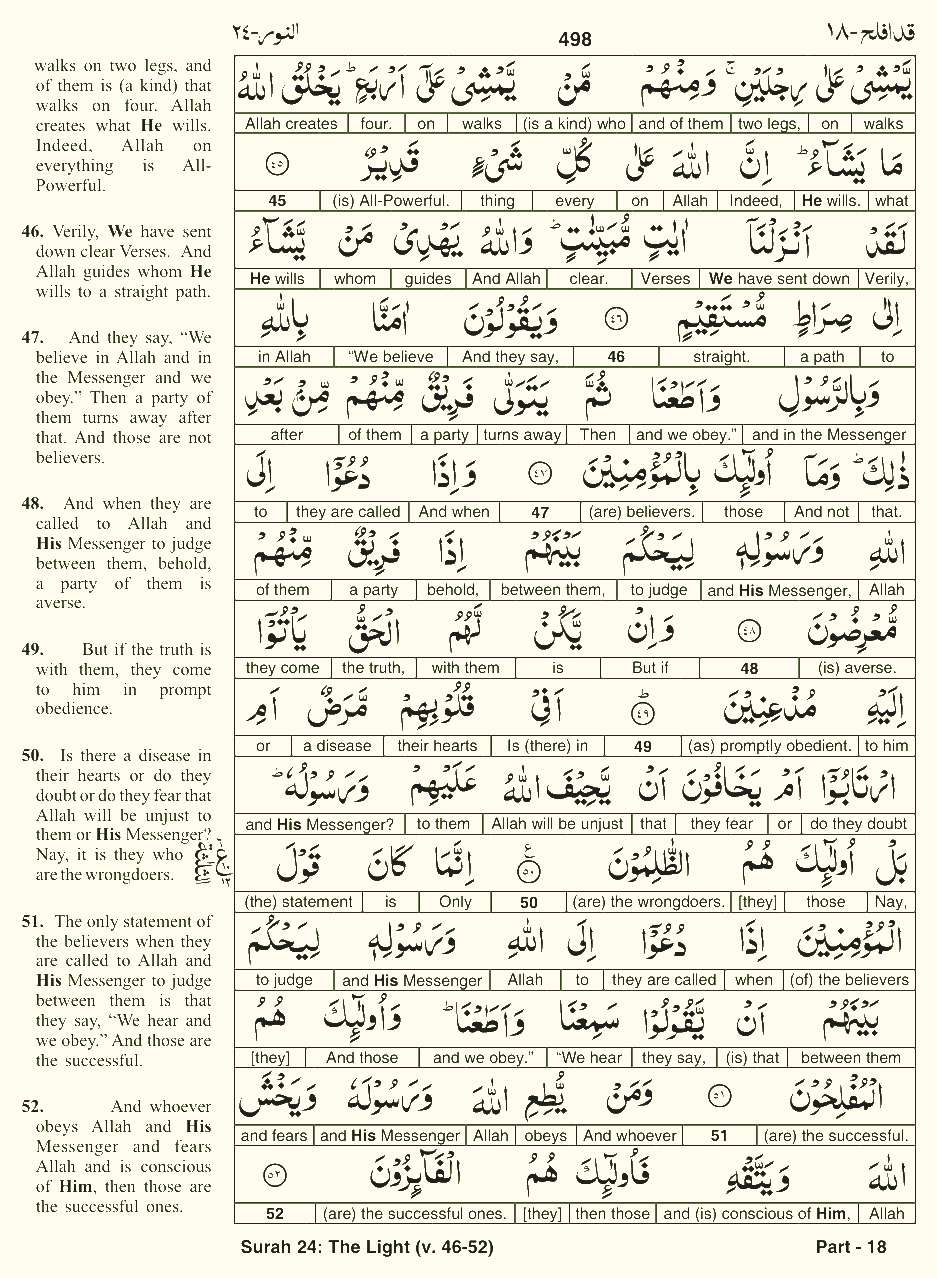 قد افلح-١٨
498
النور-٢٤
walks on two legs, and
of them is (a kind) that
walks on four. Allah
creates what He wills.
Indeed, Allah on
everything is All-
Powerful.
46. Verily, We have sent
down clear Verses. And
Allah guides whom He
wills to a straight path.
47. And they say, “We
believe in Allah and in
the Messenger and we
obey.” Then a party of
them turns away after
that. And those are not
believers.
48. And when they are
called to Allah and
His Messenger to judge
between them, behold,
a party of them is
averse.
49. But if the truth is
with them, they come
to him in prompt
obedience.
50. Is there a disease in
their hearts or do they
doubt or do they fear that
Allah will be unjust to
them or His Messenger?
Nay, it is they who
are the wrongdoers.
51. The only statement of
the believers when they
are called to Allah and
His Messenger to judge
between them is that
they say, “We hear and
we obey.” And those are
the successful.
52. And whoever
obeys Allah and His
Messenger and fears
Allah and is conscious
of Him, then those are
the successful ones.
يَّمْشِىْ عَلٰى رِجْلَيْنِ ۚ وَمِنْهُمْ مَّنْ يَّمْشِىْ عَلٰٓى اَرْبَعٍ ؕ يَخْلُقُ اللّٰهُ
Allah creates four. on walks (is a kind) who and of them two legs, on walks
مَا يَشَآءُ ؕ اِنَّ اللّٰهَ عَلٰى كُلِّ شَىْءٍ قَدِيْرٌ ٤٥
45 (is) All-Powerful. thing every on Allah Indeed, He wills. what
لَقَدْ اَنْزَلْنَاۤ اٰيٰتٍ مُّبَيِّنٰتٍ ؕ وَاللّٰهُ يَهْدِىْ مَنْ يَّشَآءُ
He wills whom guides And Allah clear. Verses We have sent down Verily,
اِلٰى صِرَاطٍ مُّسْتَقِيْمٍ ٤٦ وَيَقُوْلُوْنَ اٰمَنَّا بِاللّٰهِ
in Allah “We believe And they say, 46 straight. a path to
وَبِالرَّسُوْلِ وَاَطَعْنَا ثُمَّ يَتَوَلّٰى فَرِيْقٌ مِّنْهُمْ مِّنْۢ بَعْدِ
after of them a party turns away Then and we obey.” and in the Messenger
ذٰلِكَ ؕ وَمَاۤ اُولٰٓئِكَ بِالْمُؤْمِنِيْنَ ٤٧ وَاِذَا دُعُوْۤا اِلَى
to they are called And when 47 (are) believers. those And not that.
اللّٰهِ وَرَسُوْلِهٖ لِيَحْكُمَ بَيْنَهُمْ اِذَا فَرِيْقٌ مِّنْهُمْ
of them a party behold, between them, to judge and His Messenger, Allah
مُّعْرِضُوْنَ ٤٨ وَاِنْ يَّكُنْ لَّهُمُ الْحَقُّ يَاْتُوْۤا
they come the truth, with them is But if 48 (is) averse.
اِلَيْهِ مُذْعِنِيْنَ ؕ ٤٩ اَفِىْ قُلُوْبِهِمْ مَّرَضٌ اَمِ
or a disease their hearts Is (there) in 49 (as) promptly obedient. to him
ارْتَابُوْۤا اَمْ يَخَافُوْنَ اَنْ يَّحِيْفَ اللّٰهُ عَلَيْهِمْ وَرَسُوْلُهٗ ؕ
and His Messenger? to them Allah will be unjust that they fear or do they doubt
بَلْ اُولٰٓئِكَ هُمُ الظّٰلِمُوْنَ ٥٠ ع اِنَّمَا كَانَ قَوْلَ
(the) statement is Only 50 (are) the wrongdoers. [they] those Nay,
الْمُؤْمِنِيْنَ اِذَا دُعُوْۤا اِلَى اللّٰهِ وَرَسُوْلِهٖ لِيَحْكُمَ
to judge and His Messenger Allah to they are called when (of) the believers
بَيْنَهُمْ اَنْ يَّقُوْلُوْا سَمِعْنَا وَاَطَعْنَا ؕ وَاُولٰٓئِكَ هُمُ
[they] And those and we obey.” “We hear they say, (is) that between them
الْمُفْلِحُوْنَ ٥١ وَمَنْ يُّطِعِ اللّٰهَ وَرَسُوْلَهٗ وَيَخْشَ
and fears and His Messenger Allah obeys And whoever 51 (are) the successful.
اللّٰهَ وَيَتَّقْهِ فَاُولٰٓئِكَ هُمُ الْفَآئِزُوْنَ ٥٢
52 (are) the successful ones. [they] then those and (is) conscious of Him, Allah
Surah 24: The Light (v. 46-52)
Part - 18